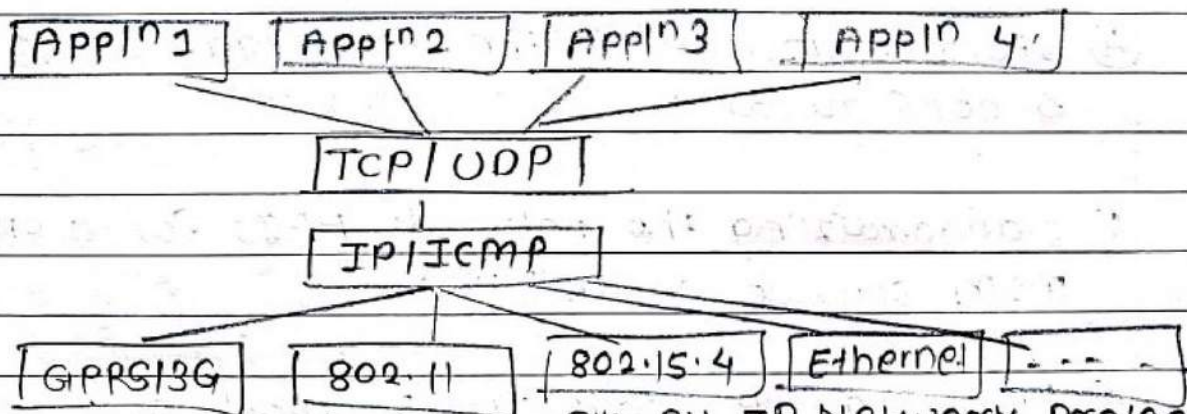 Appln 1 Appln 2 Appln 3 Appln 4
TCP/UDP
IP/ICMP
GPRS/3G 802.11 802.15.4 Ethernet ----